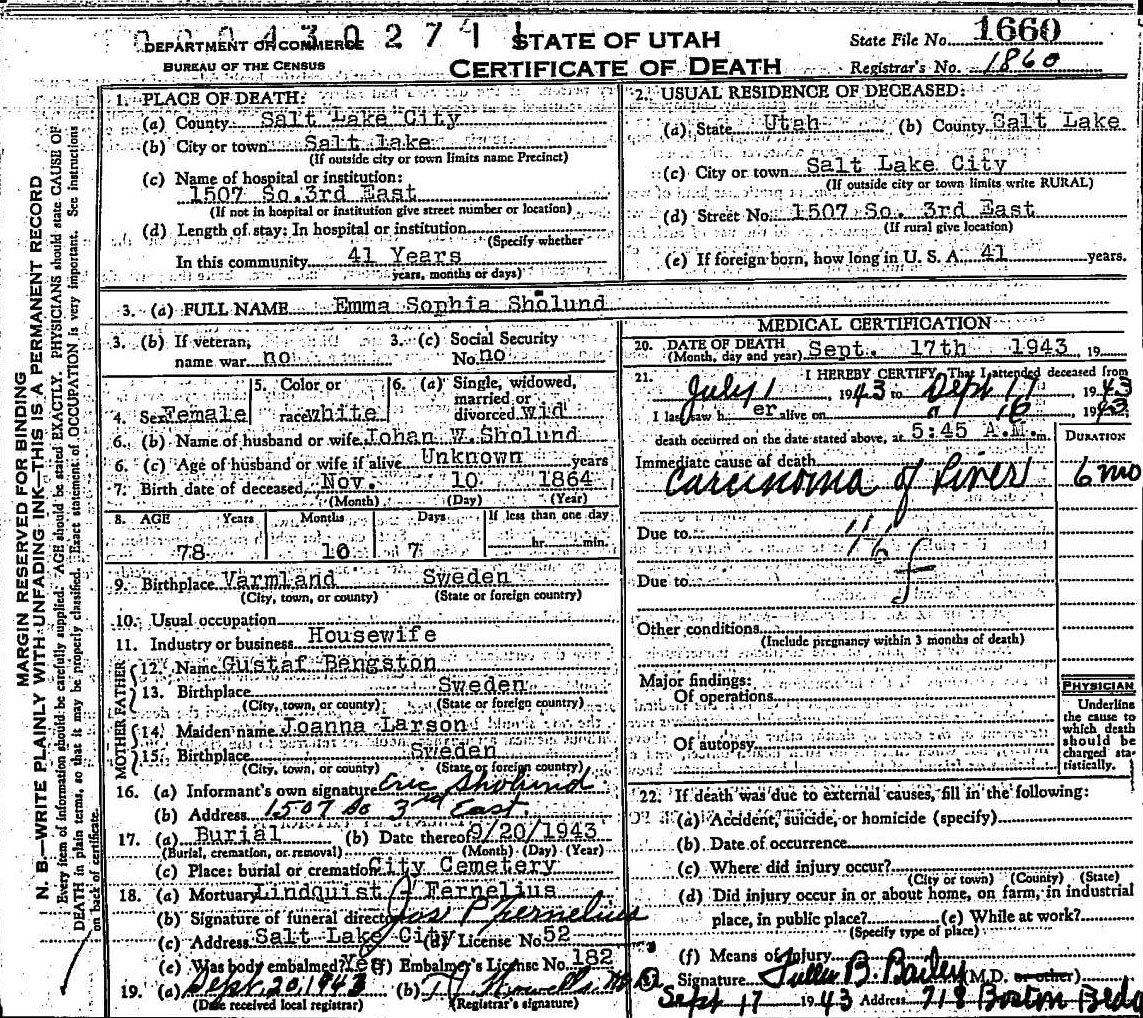 0004302711 STATE OF UTAH
State File No. 1660
DEPARTMENT OF COMMERCE
BUREAU OF THE CENSUS
CERTIFICATE OF DEATH
Registrar's No. 1860
MARGIN RESERVED FOR BINDING
N. B.—WRITE PLAINLY WITH UNFADING INK—THIS IS A PERMANENT RECORD
Every item of information should be carefully supplied. AGE should be stated EXACTLY. PHYSICIANS should state CAUSE OF
DEATH in plain terms, so that it may be properly classified. Exact statement of OCCUPATION is very important. See instructions
on back of certificate.
1. PLACE OF DEATH:
(a) County Salt Lake City
(b) City or town Salt lake
(If outside city or town limits name Precinct)
(c) Name of hospital or institution:
1507 So. 3rd East
(If not in hospital or institution give street number or location)
(d) Length of stay: In hospital or institution
(Specify whether
In this community 41 Years
years, months or days)
2. USUAL RESIDENCE OF DECEASED:
(a) State Utah (b) County Salt Lake
(c) City or town Salt Lake City
(If outside city or town limits write RURAL)
(d) Street No. 1507 So. 3rd East
(If rural give location)
(e) If foreign born, how long in U. S. A. 41 years.
3. (a) FULL NAME Emma Sophia Sholund
3. (b) If veteran, name war no
3. (c) Social Security No. no
4. Sex Female
5. Color or race white
6. (a) Single, widowed, married or divorced wid
6. (b) Name of husband or wife Johan W. Sholund
6. (c) Age of husband or wife if alive Unknown years
7. Birth date of deceased Nov. 10 1864
(Month) (Day) (Year)
8. AGE Years Months Days If less than one day
78 10 7 hr. min.
9. Birthplace Varmland Sweden
(City, town, or county) (State or foreign country)
10. Usual occupation
11. Industry or business Housewife
FATHER
12. Name Gustaf Bengston
13. Birthplace Sweden
(City, town, or county) (State or foreign country)
MOTHER
14. Maiden name Joanna Larson
15. Birthplace Sweden
(City, town, or county) (State or foreign country)
16. (a) Informant's own signature Eric Sholund
(b) Address 1507 So 3rd East.
17. (a) Burial (b) Date thereof 9/20/1943
(Burial, cremation, or removal) (Month) (Day) (Year)
(c) Place: burial or cremation City Cemetery
18. (a) Mortuary Lindquist & Fernelius
(b) Signature of funeral director Jos P Fernelius
(c) Address Salt Lake City (d) License No. 52
(e) Was body embalmed? Yes (f) Embalmer's License No. 182
19. (a) Sept 20, 1943 (b)
(Date received local registrar) (Registrar's signature)
MEDICAL CERTIFICATION
20. DATE OF DEATH
(Month, day and year) Sept. 17th 1943, 19
21. I HEREBY CERTIFY, That I attended deceased from
July 1 1943 to Sept 17, 1943
I last saw h er alive on " 16, 1943,
death occurred on the date stated above, at 5:45 A.M. m.
DURATION
Immediate cause of death
Carcinoma of Liver 6 mo
Due to
46 f
Due to
Other conditions
(Include pregnancy within 3 months of death)
Major findings:
Of operations
Of autopsy
PHYSICIAN
Underline
the cause to
which death
should be
charged sta-
tistically.
22. If death was due to external causes, fill in the following:
(a) Accident, suicide, or homicide (specify)
(b) Date of occurrence
(c) Where did injury occur?
(City or town) (County) (State)
(d) Did injury occur in or about home, on farm, in industrial
place, in public place? (e) While at work?
(Specify type of place)
(f) Means of Injury
Signature Fuller B. Bailey (M.D. or other)
Sept 17 1943 Address 718 Boston Bldg